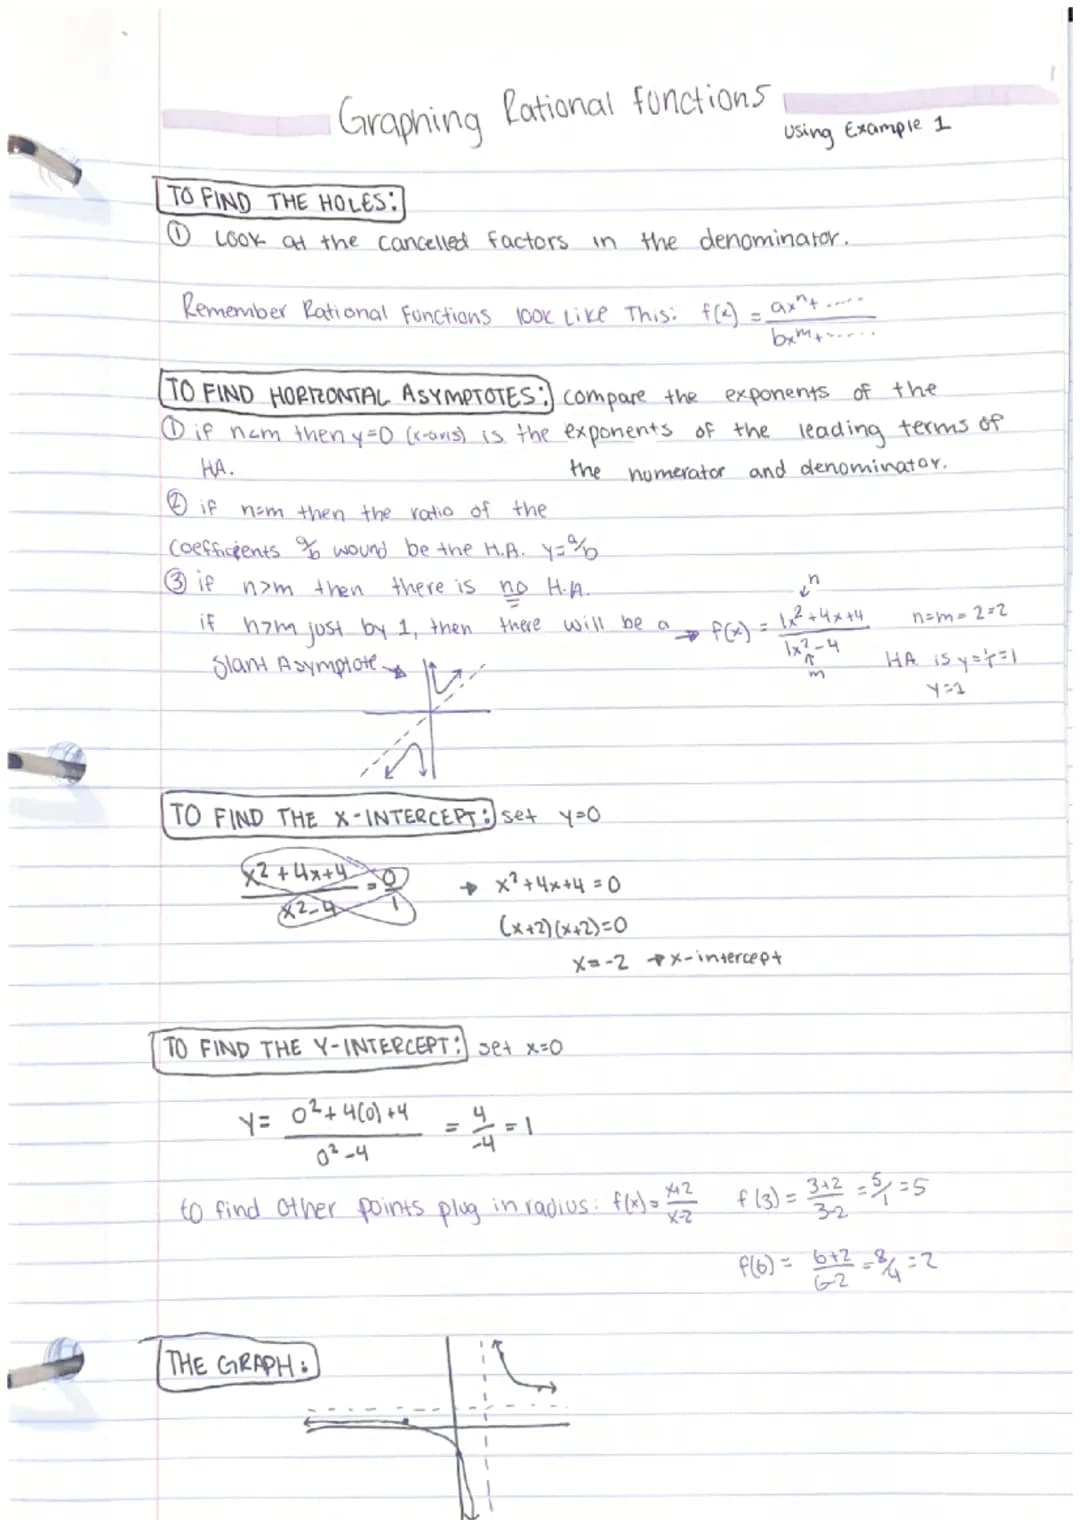 Graphing Rational functions
Using Example 1
TO FIND THE HOLES:
① Look at the cancelled factors in the denominator.
Remember Rational Functions look Like This: f(x) = ax^n + ..... / bx^m + ......
TO FIND HORIZONTAL ASYMPTOTES: compare the exponents of the
① if n<m then y=0 (x-axis) is the exponents of the leading terms of
HA. the numerator and denominator.
② if n=m then the ratio of the
Coefficients a/b wound be the H.A. y=a/b
③ if n>m then there is no H.A.
if n>m just by 1, then there will be a → f(x) = 1x² + 4x + 4 / 1x² - 4 n=m= 2=2
n
m
Slant Asymptote HA is y=1/1=1
y=1
TO FIND THE X-INTERCEPT: set y=0
x² + 4x + 4 / x² - 4 = 0/1 → x² + 4x + 4 = 0
(x+2)(x+2)=0
x=-2 → x-intercept
TO FIND THE Y-INTERCEPT: set x=0
Y= 0² + 4(0) + 4 / 0² - 4 = 4/-4 = 1
to find other points plug in radius: f(x) = x+2 / x-2 f(3) = 3+2 / 3-2 = 5/1 = 5
f(6) = 6+2 / 6-2 = 8/4 = 2
THE GRAPH: